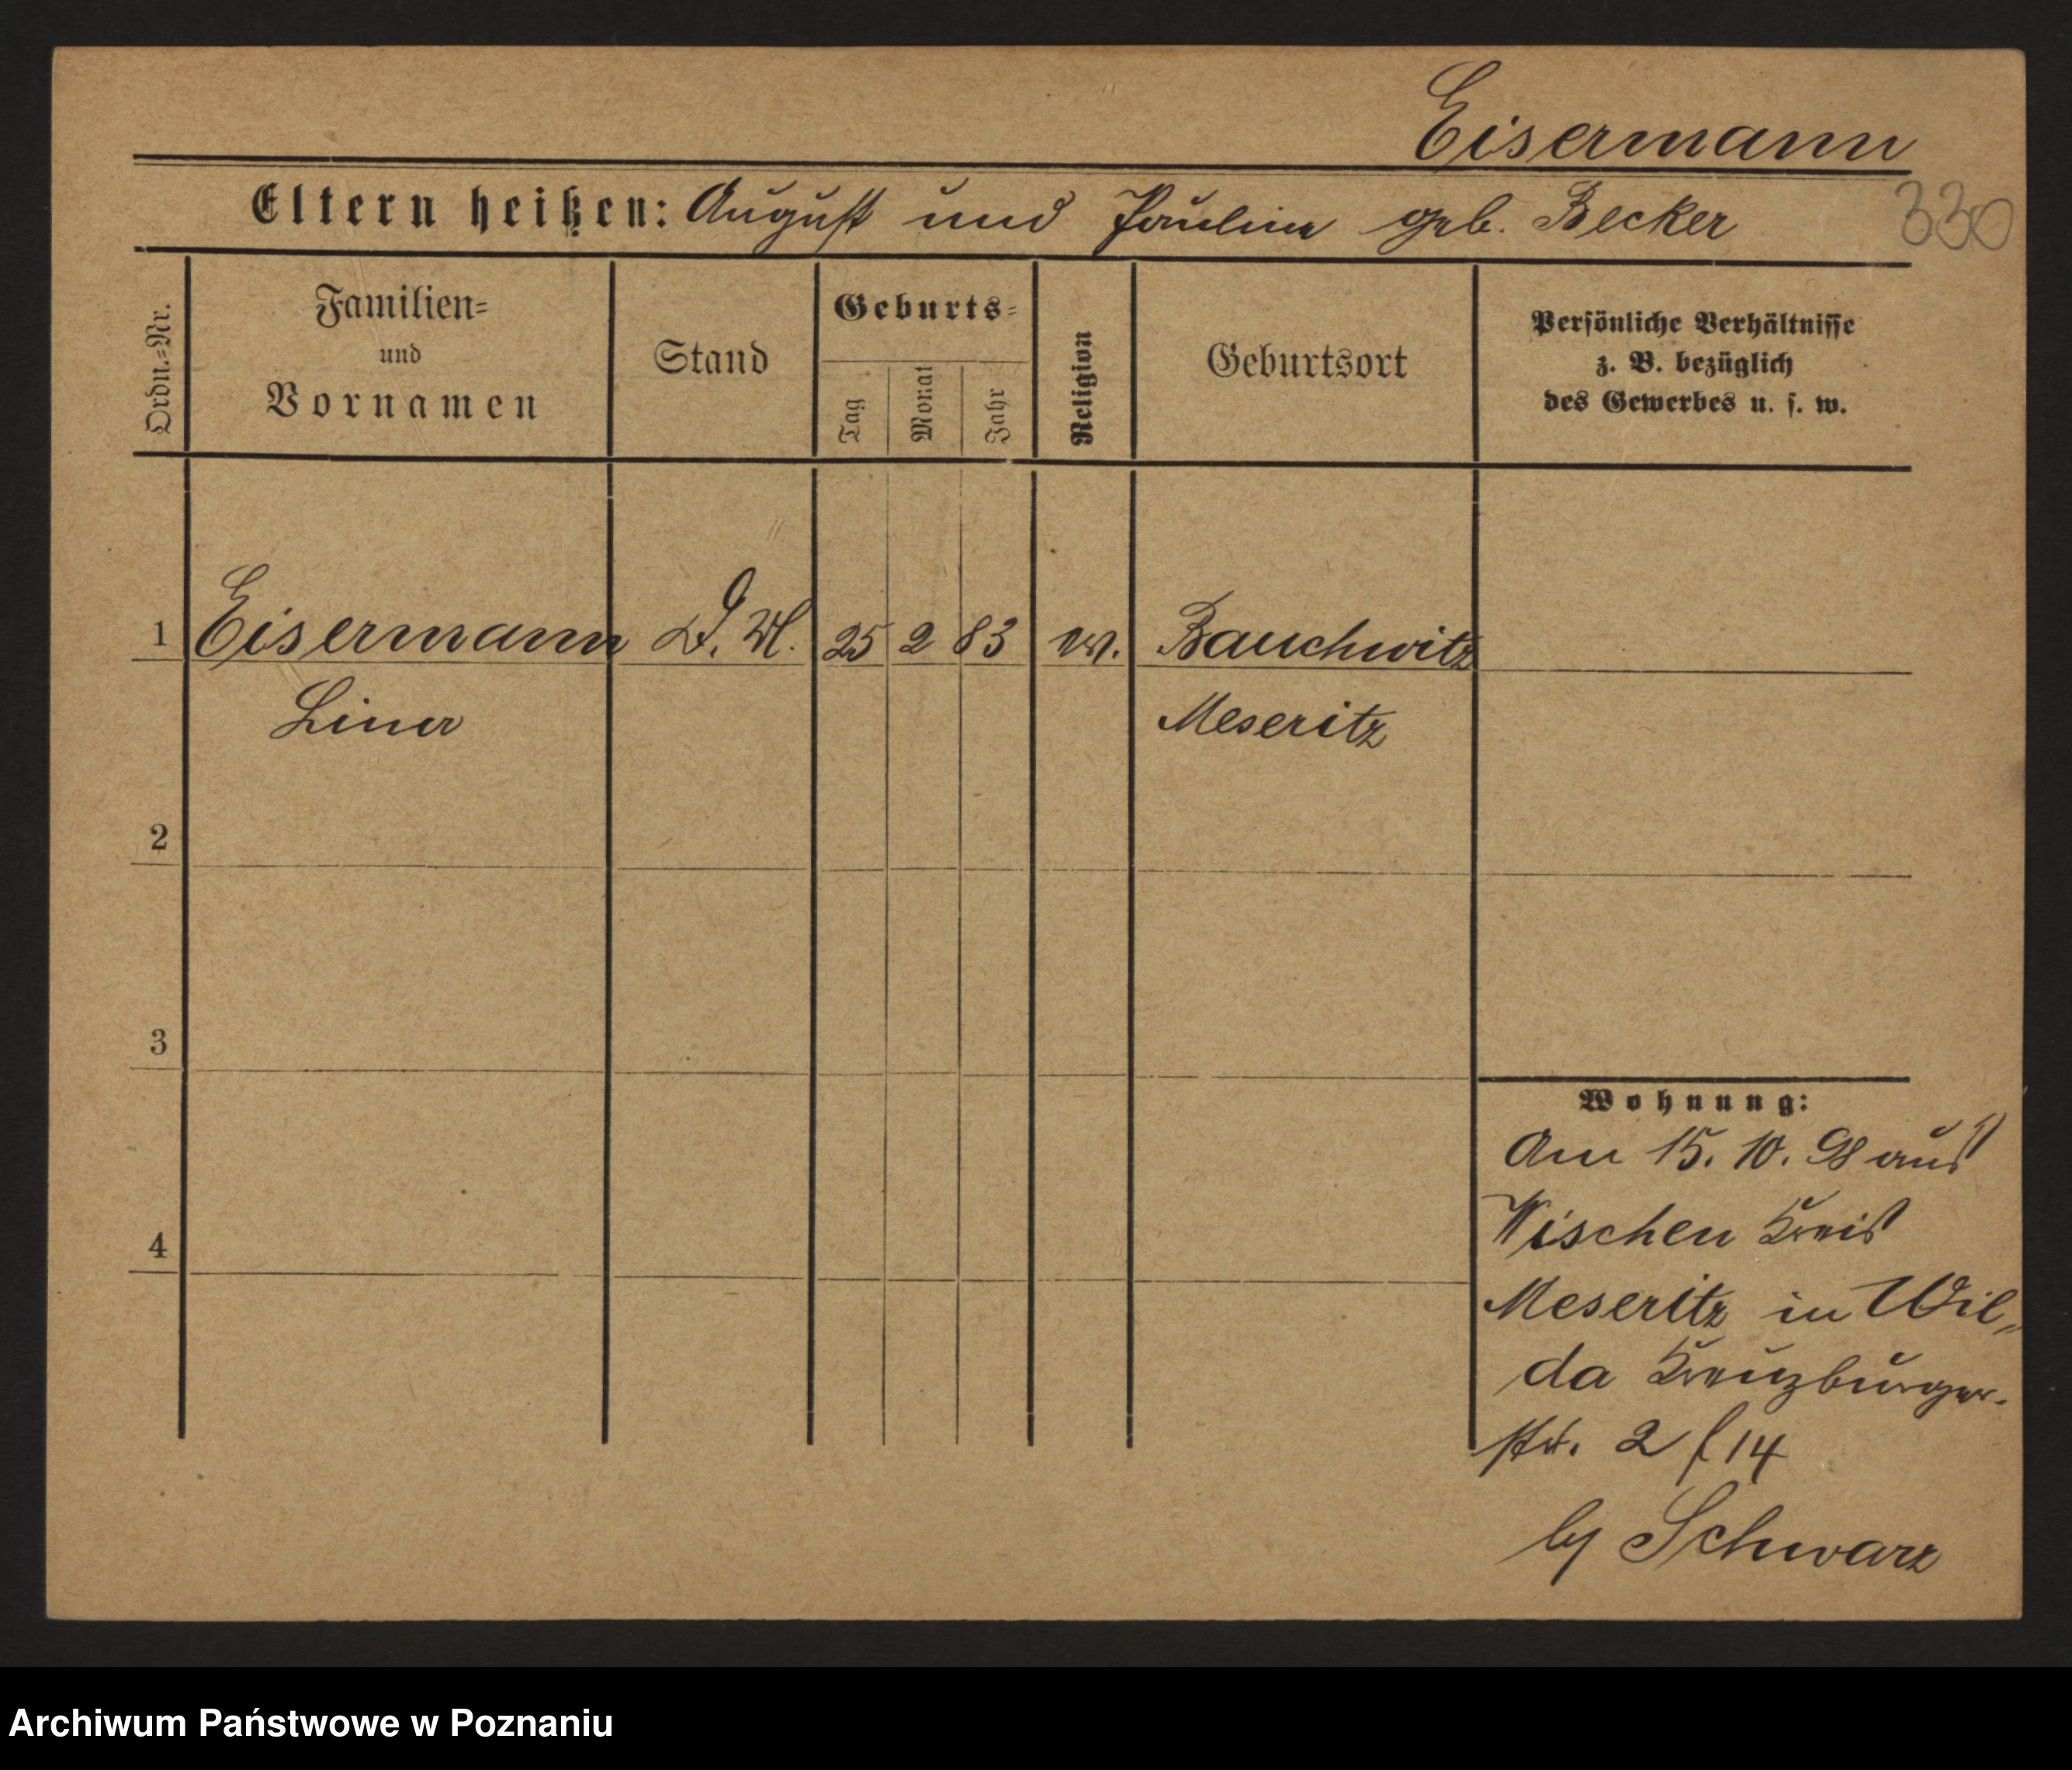 Eisermann
Eltern heißen: August und Pauline geb. Becker
330
Ordn.=Nr.
Familien=
und
Vornamen
Stand
Geburts=
Tag
Monat
Jahr
Religion
Geburtsort
Persönliche Verhältnisse
z. B. bezüglich
des Gewerbes u. s. w.
1 Eisermann D. M. 25 2 83 ev. Bauchwitz
Lina Meseritz
2
3
4
Wohnung:
Am 15. 10. 98 aus
Wischen Kreis
Meseritz in Wil„
da Kreuzburger.
str. 2 f 14
by Schwarz
Archiwum Państwowe w Poznaniu